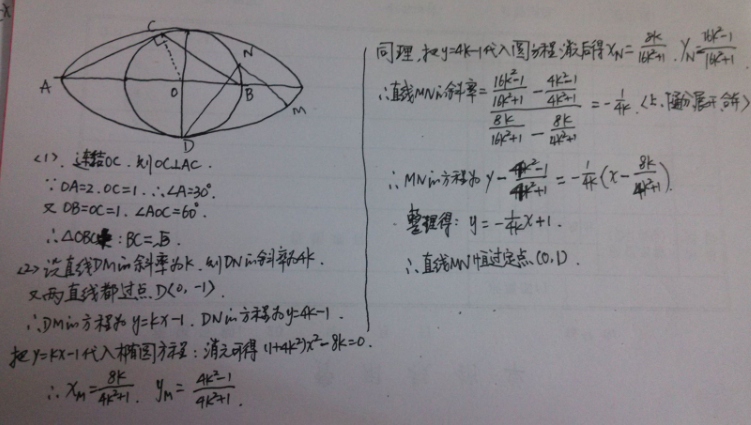 C
N
A
O
B
M
D
<1>. 连结OC. 则OC⊥AC.
∵OA=2. OC=1. ∴∠A=30°.
又 OB=OC=1. ∠AOC=60°.
∴△OBC中: BC=√3.
<2> 设直线DM的斜率为k. 则DN的斜率为4k.
又两直线都过点D(0, -1).
∴DM的方程为y=kx-1. DN的方程为y=4k-1.
把y=kx-1代入椭圆方程: 消元可得(1+4k²)x²-8k=0.
∴ x_M=8k/(4k²+1). y_M=(4k²-1)/(4k²+1).
同理, 把y=4k-1代入圆方程消后得x_N=8k/(16k²+1). y_N=(16k²-1)/(16k²+1)
∴直线MN的斜率=((16k²-1)/(16k²+1)-(4k²-1)/(4k²+1))/(8k/(16k²+1)-8k/(4k²+1))=-1/4k.
∴MN的方程为y-(4k²-1)/(4k²+1)=-1/4k(x-8k/(4k²+1)).
整理得: y=-1/4k x+1.
∴直线MN恒过定点(0,1).